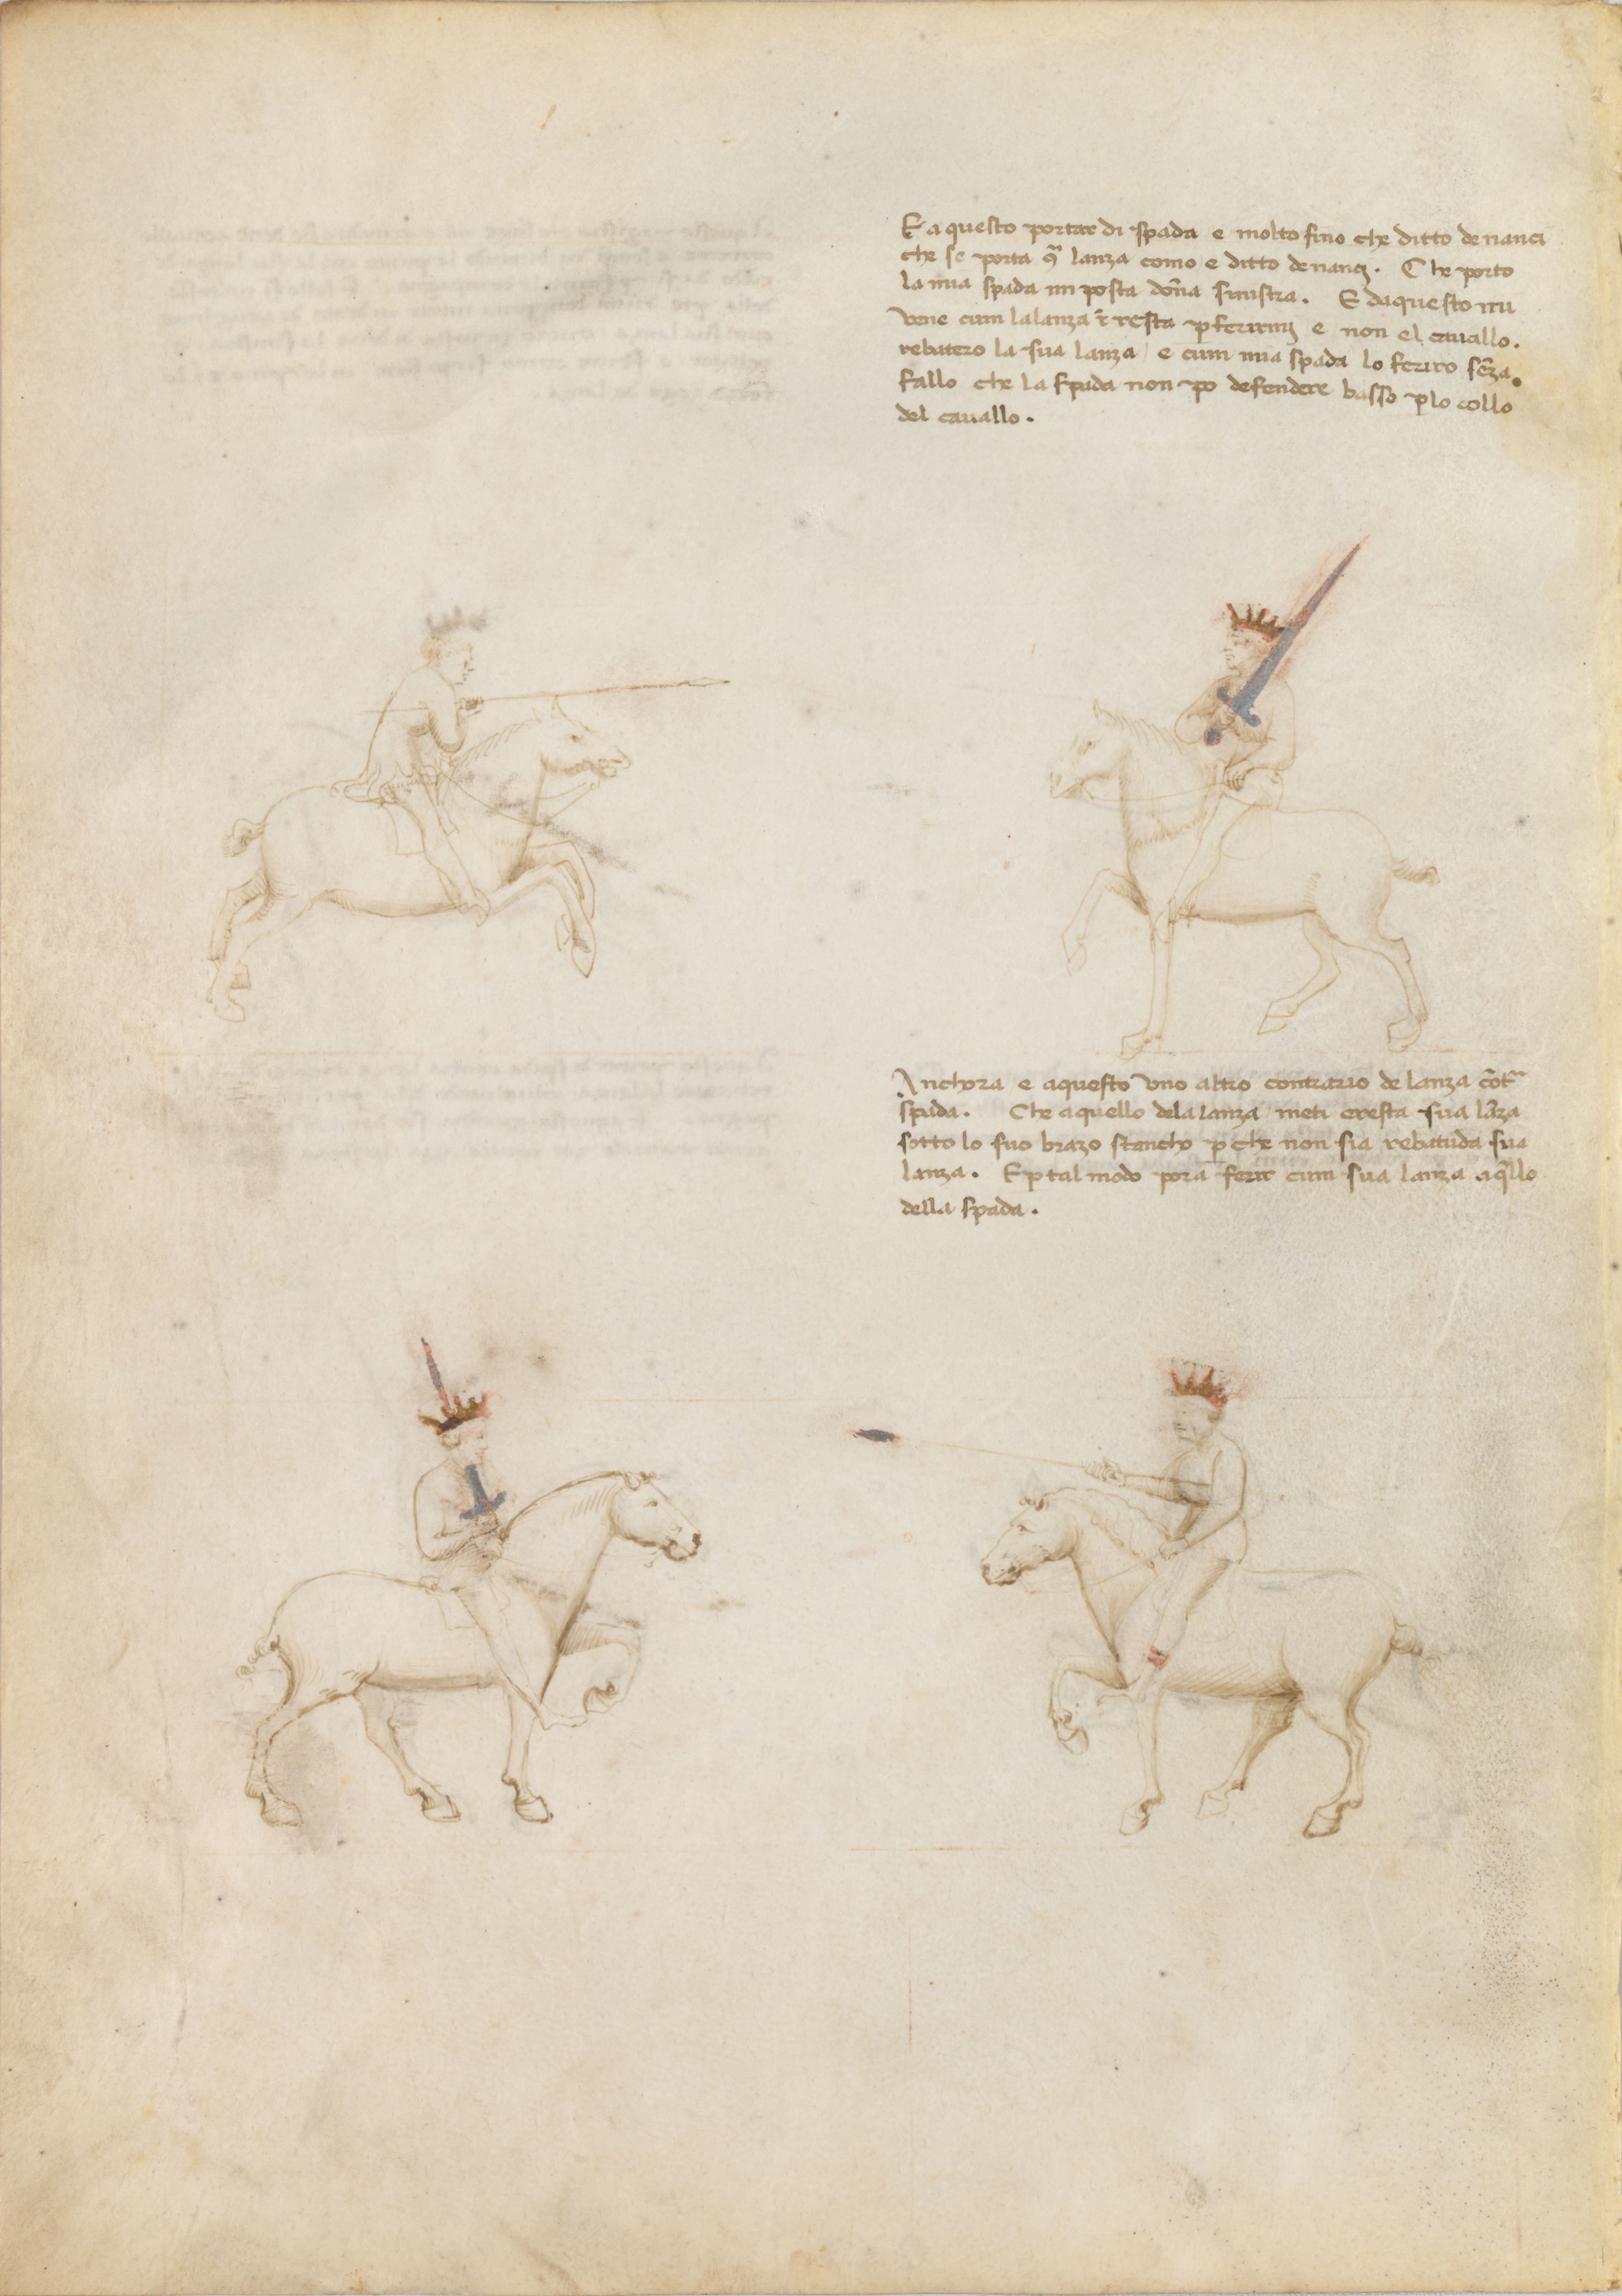 E aquesto portar di spada e molto fino che ditto denanci
che se porta 9ͣ lanza como e ditto denanç. Che porto
la mia spada in posta dōna sinistra. E daquesto mi
vene cum la lanza ī resta p ferirmi e non el cauallo.
rebatero la sua lanza e cum mia spada lo feriro sēza
fallo che la spada non po defendere basso plo collo
del cauallo.
Anchora e aquesto vno altro contrario de lanza cōtͣ
spada. Che aquello dela lanza meti eresta sua lāza
sotto lo suo brazo stancho p che non sia rebatuda sua
lanza. E p tal modo porā ferir cum sua lanza aqllo
della spada.